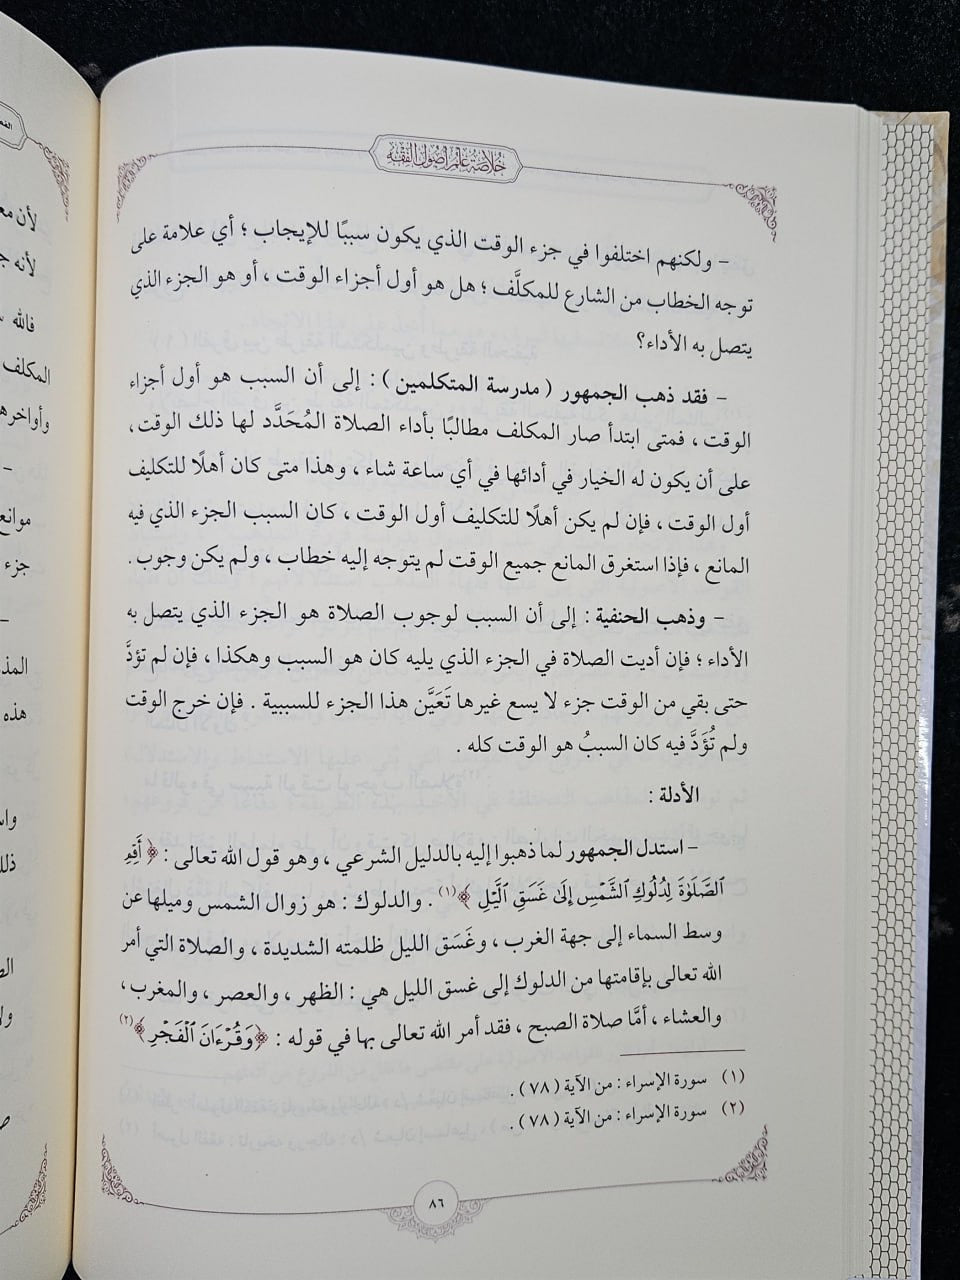 خلاصة علم أصول الفقه
- ولكنهم اختلفوا في جزء الوقت الذي يكون سببًا للإيجاب ؛ أي علامة على
توجه الخطاب من الشارع للمكلَّف ؛ هل هو أول أجزاء الوقت ، أو هو الجزء الذي
يتصل به الأداء؟
- فقد ذهب الجمهور ( مدرسة المتكلمين ) : إلى أن السبب هو أول أجزاء
الوقت ، فمتى ابتدأ صار المكلف مطالبًا بأداء الصلاة المُحَدَّد لها ذلك الوقت،
على أن يكون له الخيار في أدائها في أي ساعة شاء ، وهذا متى كان أهلًا للتكليف
أول الوقت ، فإن لم يكن أهلًا للتكليف أول الوقت ، كان السبب الجزء الذي فيه
المانع ، فإذا استغرق المانع جميع الوقت لم يتوجه إليه خطاب ، ولم يكن وجوب .
- وذهب الحنفية : إلى أن السبب لوجوب الصلاة هو الجزء الذي يتصل به
الأداء ؛ فإن أديت الصلاة في الجزء الذي يليه كان هو السبب وهكذا ، فإن لم تؤدَّ
حتى بقي من الوقت جزء لا يسع غيرها تَعَيَّن هذا الجزء للسببية . فإن خرج الوقت
ولم تُؤَدَّ فيه كان السببُ هو الوقت كله .
الأدلة :
- استدل الجمهور لما ذهبوا إليه بالدليل الشرعي ، وهو قول الله تعالى : ﴿ أَقِمِ
ٱلصَّلَوٰةَ لِدُلُوكِ ٱلشَّمْسِ إِلَىٰ غَسَقِ ٱلَّيْلِ ﴾(١) . والدلوك : هو زوال الشمس وميلها عن
وسط السماء إلى جهة الغرب ، وغَسَق الليل ظلمته الشديدة ، والصلاة التي أمر
الله تعالى بإقامتها من الدلوك إلى غسق الليل هي : الظهر ، والعصر ، والمغرب ،
والعشاء ، أمَّا صلاة الصبح ، فقد أمر الله تعالى بها في قوله : ﴿وَقُرْءَانَ ٱلْفَجْرِ﴾(٢)
(١) سورة الإسراء : من الآية ( ٧٨ ) .
(٢) سورة الإسراء : من الآية ( ٧٨ ) .
٨٦
لأنه
فالله
المكلف
وأواخر
-
موانع
جزء
-
هذه